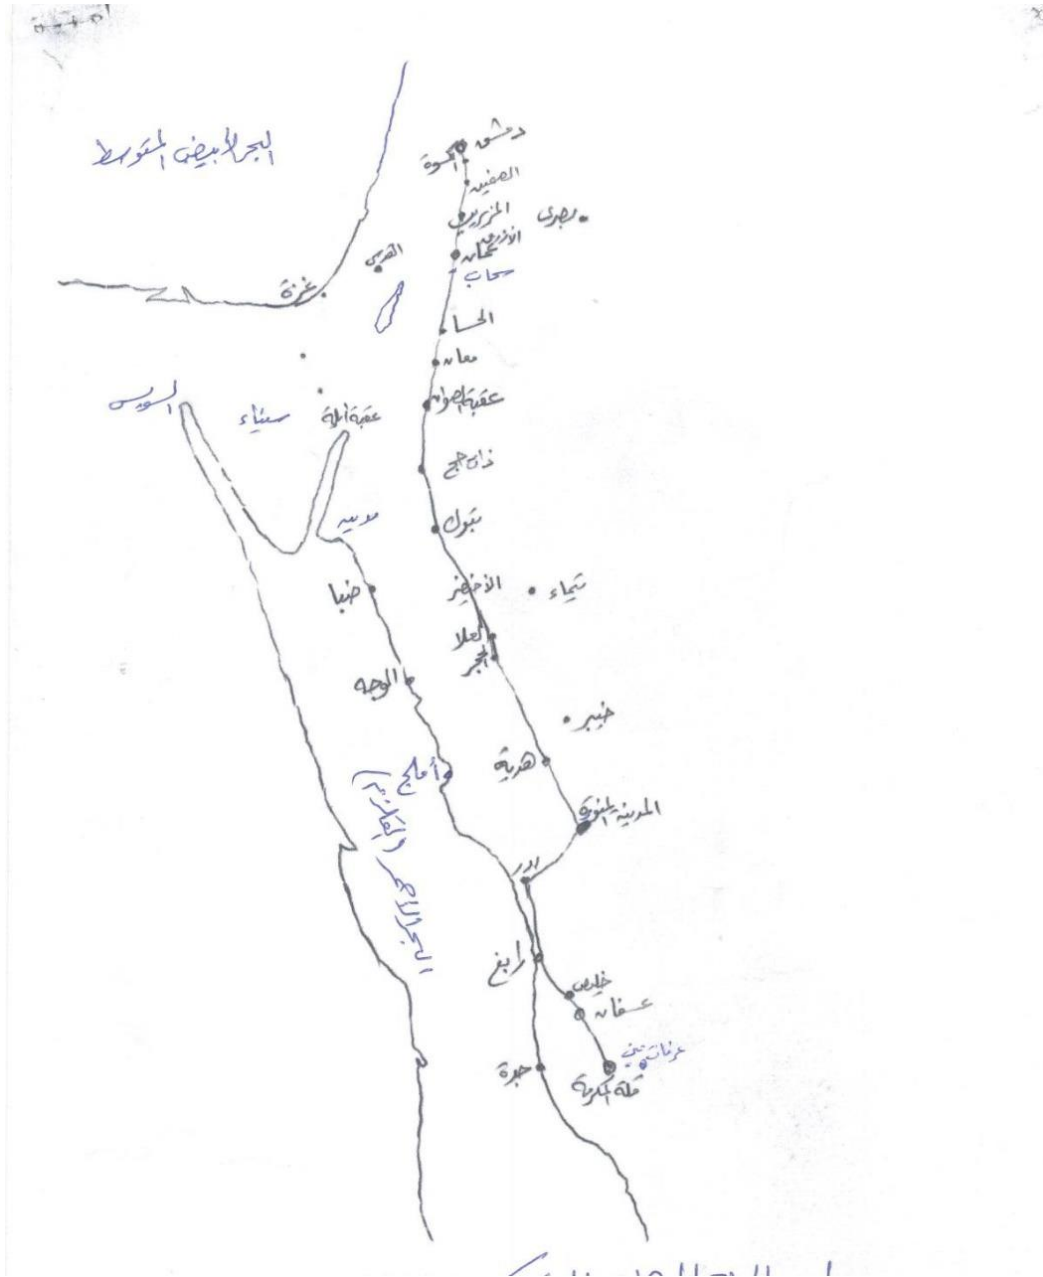 البحر الأبيض المتوسط
دمشق
الكسوة
الصنمين
المزيريب
بصرى
الأزرق
عمان
سحاب
القدس
غزة
الحسا
معان
عقبة الصوان
السويس
سيناء
عقبة أيلة
ذات حج
مدين
تبوك
ضبا
الأخيضر
تيماء
العلا
الحجر
الوجه
خيبر
هدية
أملج
المدينة المنورة
البحر الأحمر (القلزم)
بدر
رابغ
خليص
عسفان
عرفات منى
جدة
مكة المكرمة